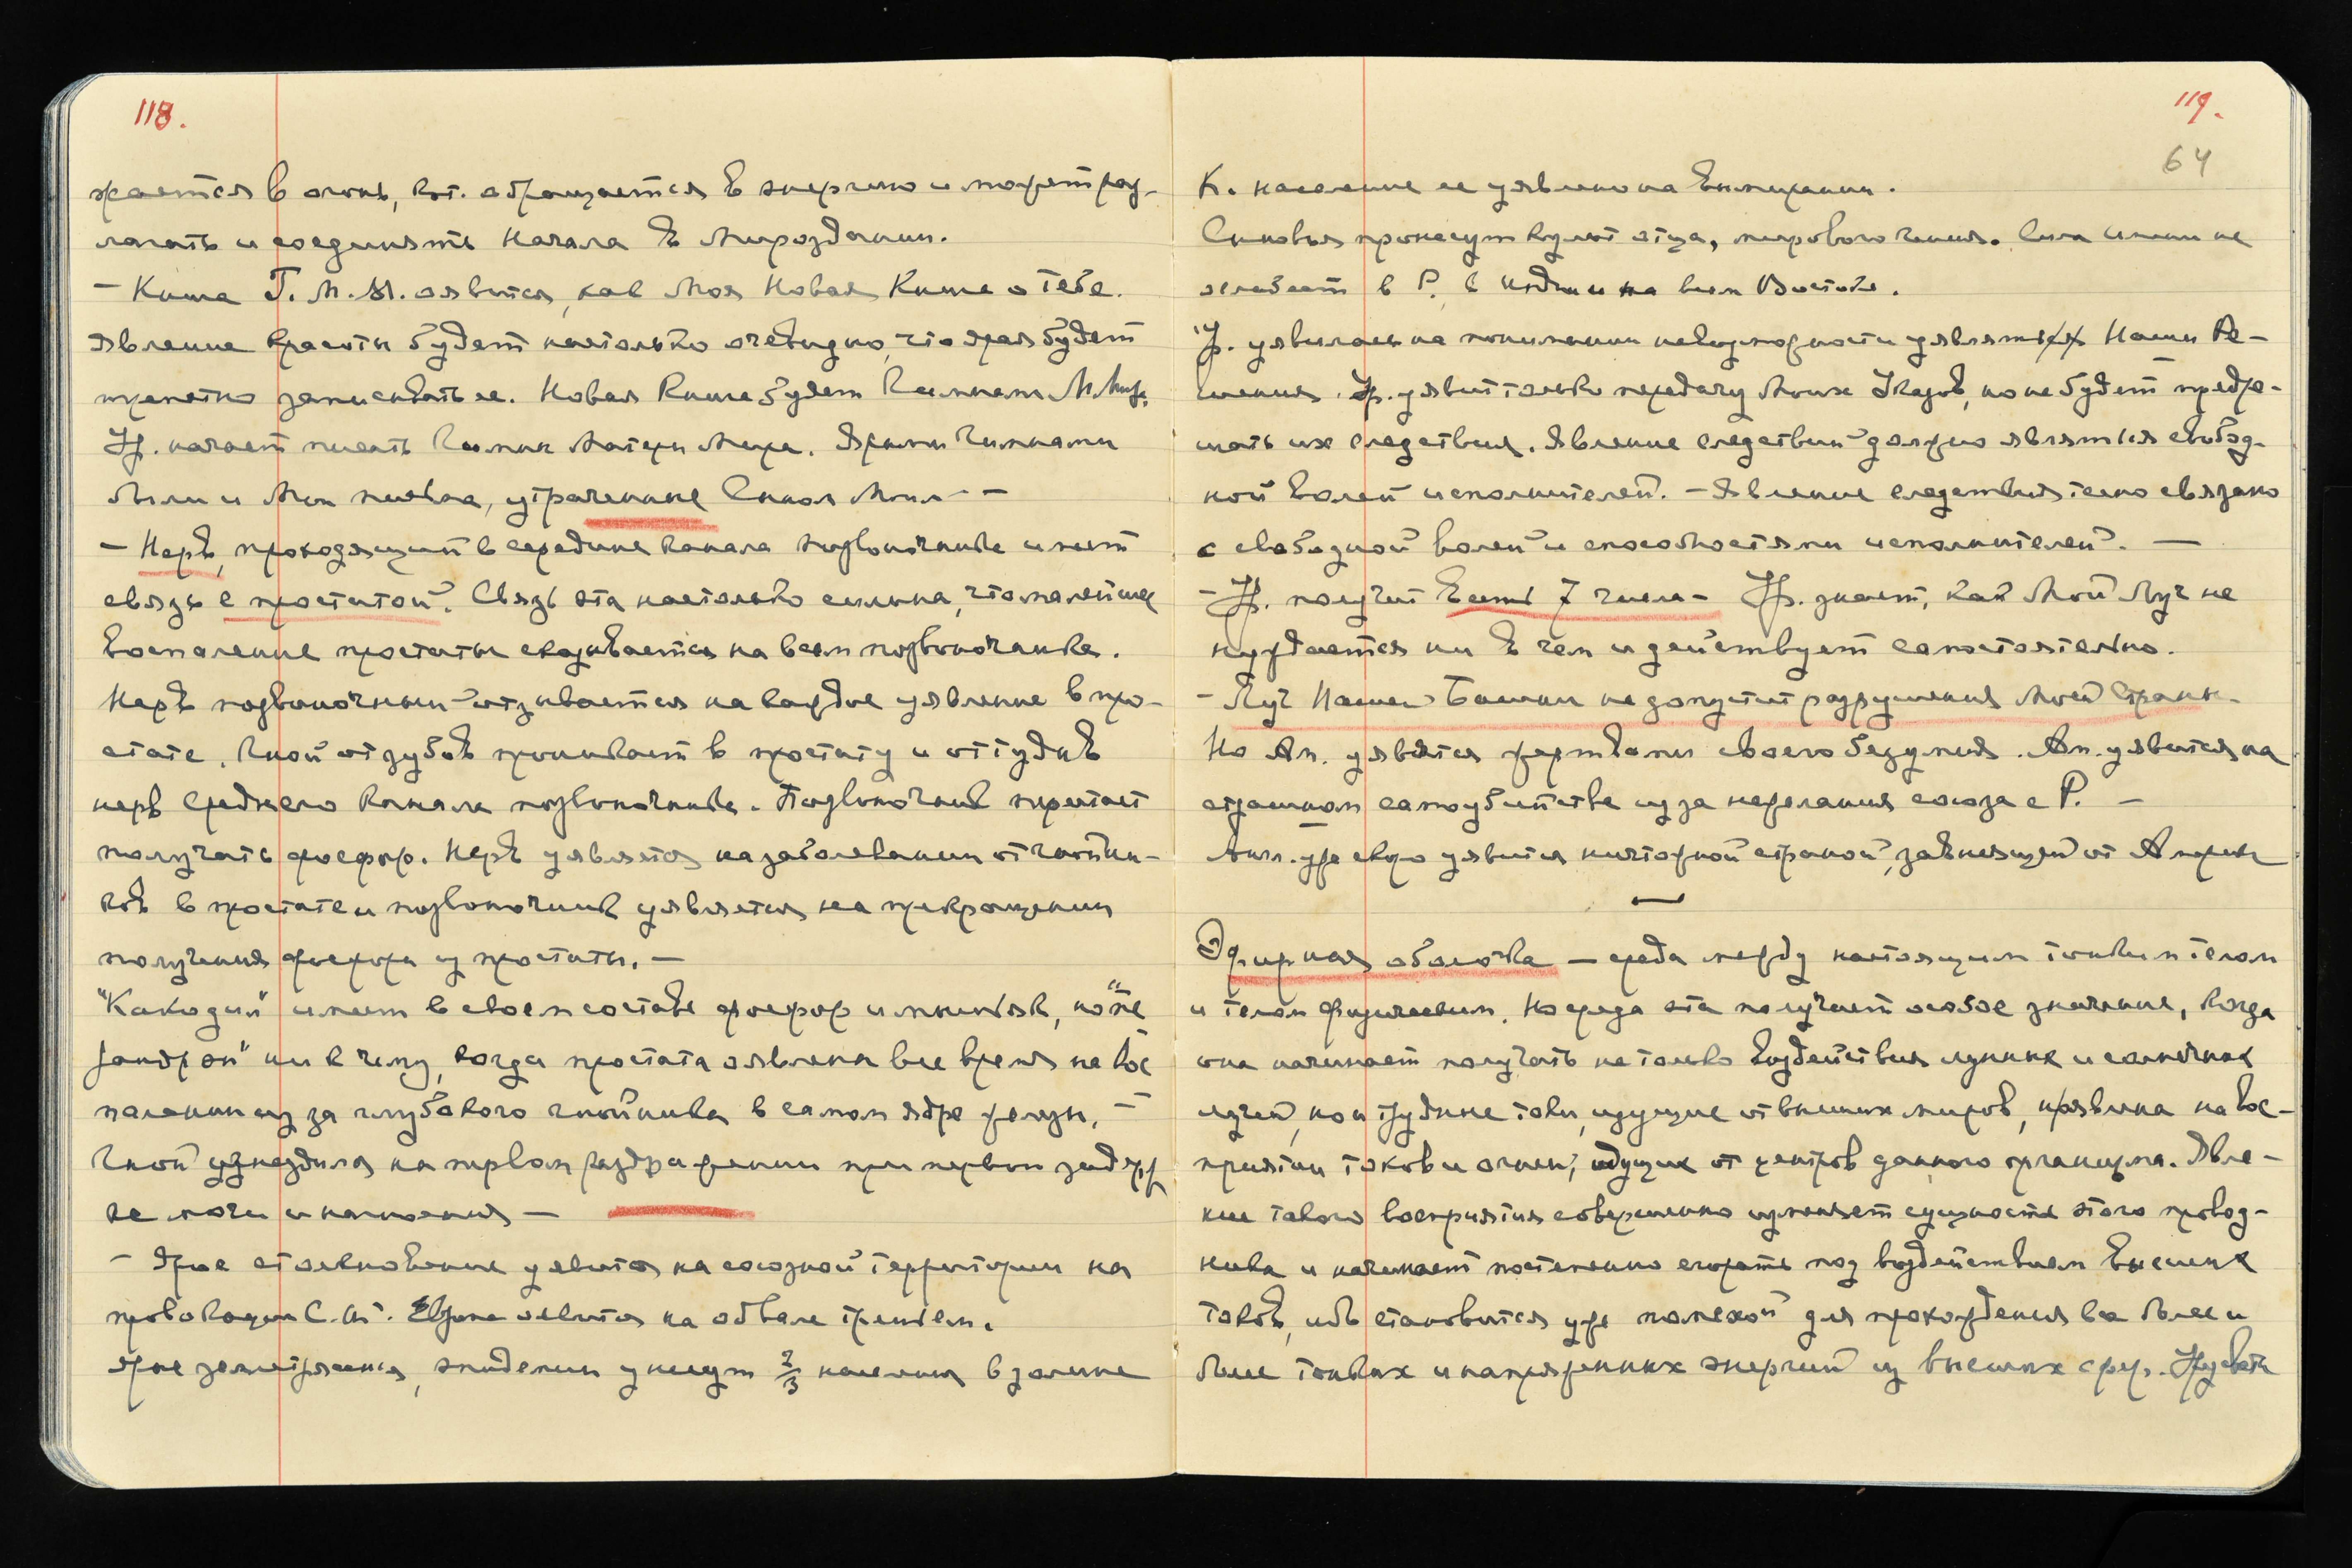 118.
жается в огонь, кот. обращается в энергию и может раз-
лагать и соединять Начала в Мироздании.
— Книга Т. М. М. явится, как Моя Новая Книга о Тебе.
Явление красоты будет настолько очевидно, что ярая будет
трепетно записывать ее. Новая Книга будет Гимнам М. Мира.
Ур. начнет писать Гимны Матери Мира. Ярыми Гимнами
были и Мои письма, утраченные Сыном Моим — —
— Нерв, проходящий в середине канала позвоночника имеет
связь с простатой. Связь эта настолько сильна, что малейшее
воспаление простаты сказывается на всем позвоночнике.
Нерв позвоночный отзывается на каждое уявление в про-
стате. Гной от зубов проникает в простату и оттуда в
нерв среднего канала позвоночника. Позвоночник перестает
получать фосфор. Нерв уявляется на заболевании от гнойни-
ков в простате и позвоночник уявляется на прекращении
получения фосфора из простаты. —
"Какодил" имеет в своем составе фосфор и мышьяк, но "те
" ни к чему, когда простата явлена все время на вос
палении из за глубокого гнойника в самом ядре железы. —
Гной угнездился на первом раздражении при первой задерж
ке мочи и начинения —
— Ярое столкновение уявится на союзной территории на
провокации С. Ш. Европа явится на обвале третьем.
Ярые землетрясения, эпидемии унесут 2/3 населения в долине
119.
64
К. население ее уявлено на вымирании.
Сыновья пронесут культ отца, мирового гения. Сила имени не
ослабеет в Р., в Индии и на всем Востоке.
Ур. уявилась на понимании невозможности уявлять Наши Ре-
шения. Ур. уявит только передачу Моих Указов, но не будет предре-
шать их следствия. Явление следствий должно являться свобод-
ной волей исполнителей. — Явление следствия тесно связано
с свободной волей и способностями исполнителей. —
— Ур. получит Весть 7 числа — Ур. знает, как Мой Луч не
нуждается ни в чем и действует самостоятельно.
— Луч Нашей Башни не допустит разрушения Моей Страны.
Но Ам. уявятся жертвами своего безумия. Ам. уявится на
страшном самоубийстве из за нежелания союза с Р. —
Англ. уже скоро уявится ничтожной страной, зависящей от Америк
—
Эфирная оболочка — среда между настоящим тонким телом
и телом физическим. Но среда эта получает особое значение, когда
она начинает получать не только воздействия лунных и солнечных
лучей, но и трудные токи, идущие от высших миров, и явлена на вос-
приятии токов и огней, идущих от центров данного организма. Явле-
ние такого восприятия совершенно изменяет сущность этого провод-
ника и начинает постепенно сгорать под воздействием высших
токов, ибо становится уже помехой для прохождения все более и
более тонких и напряженных энергий из высших сфер.